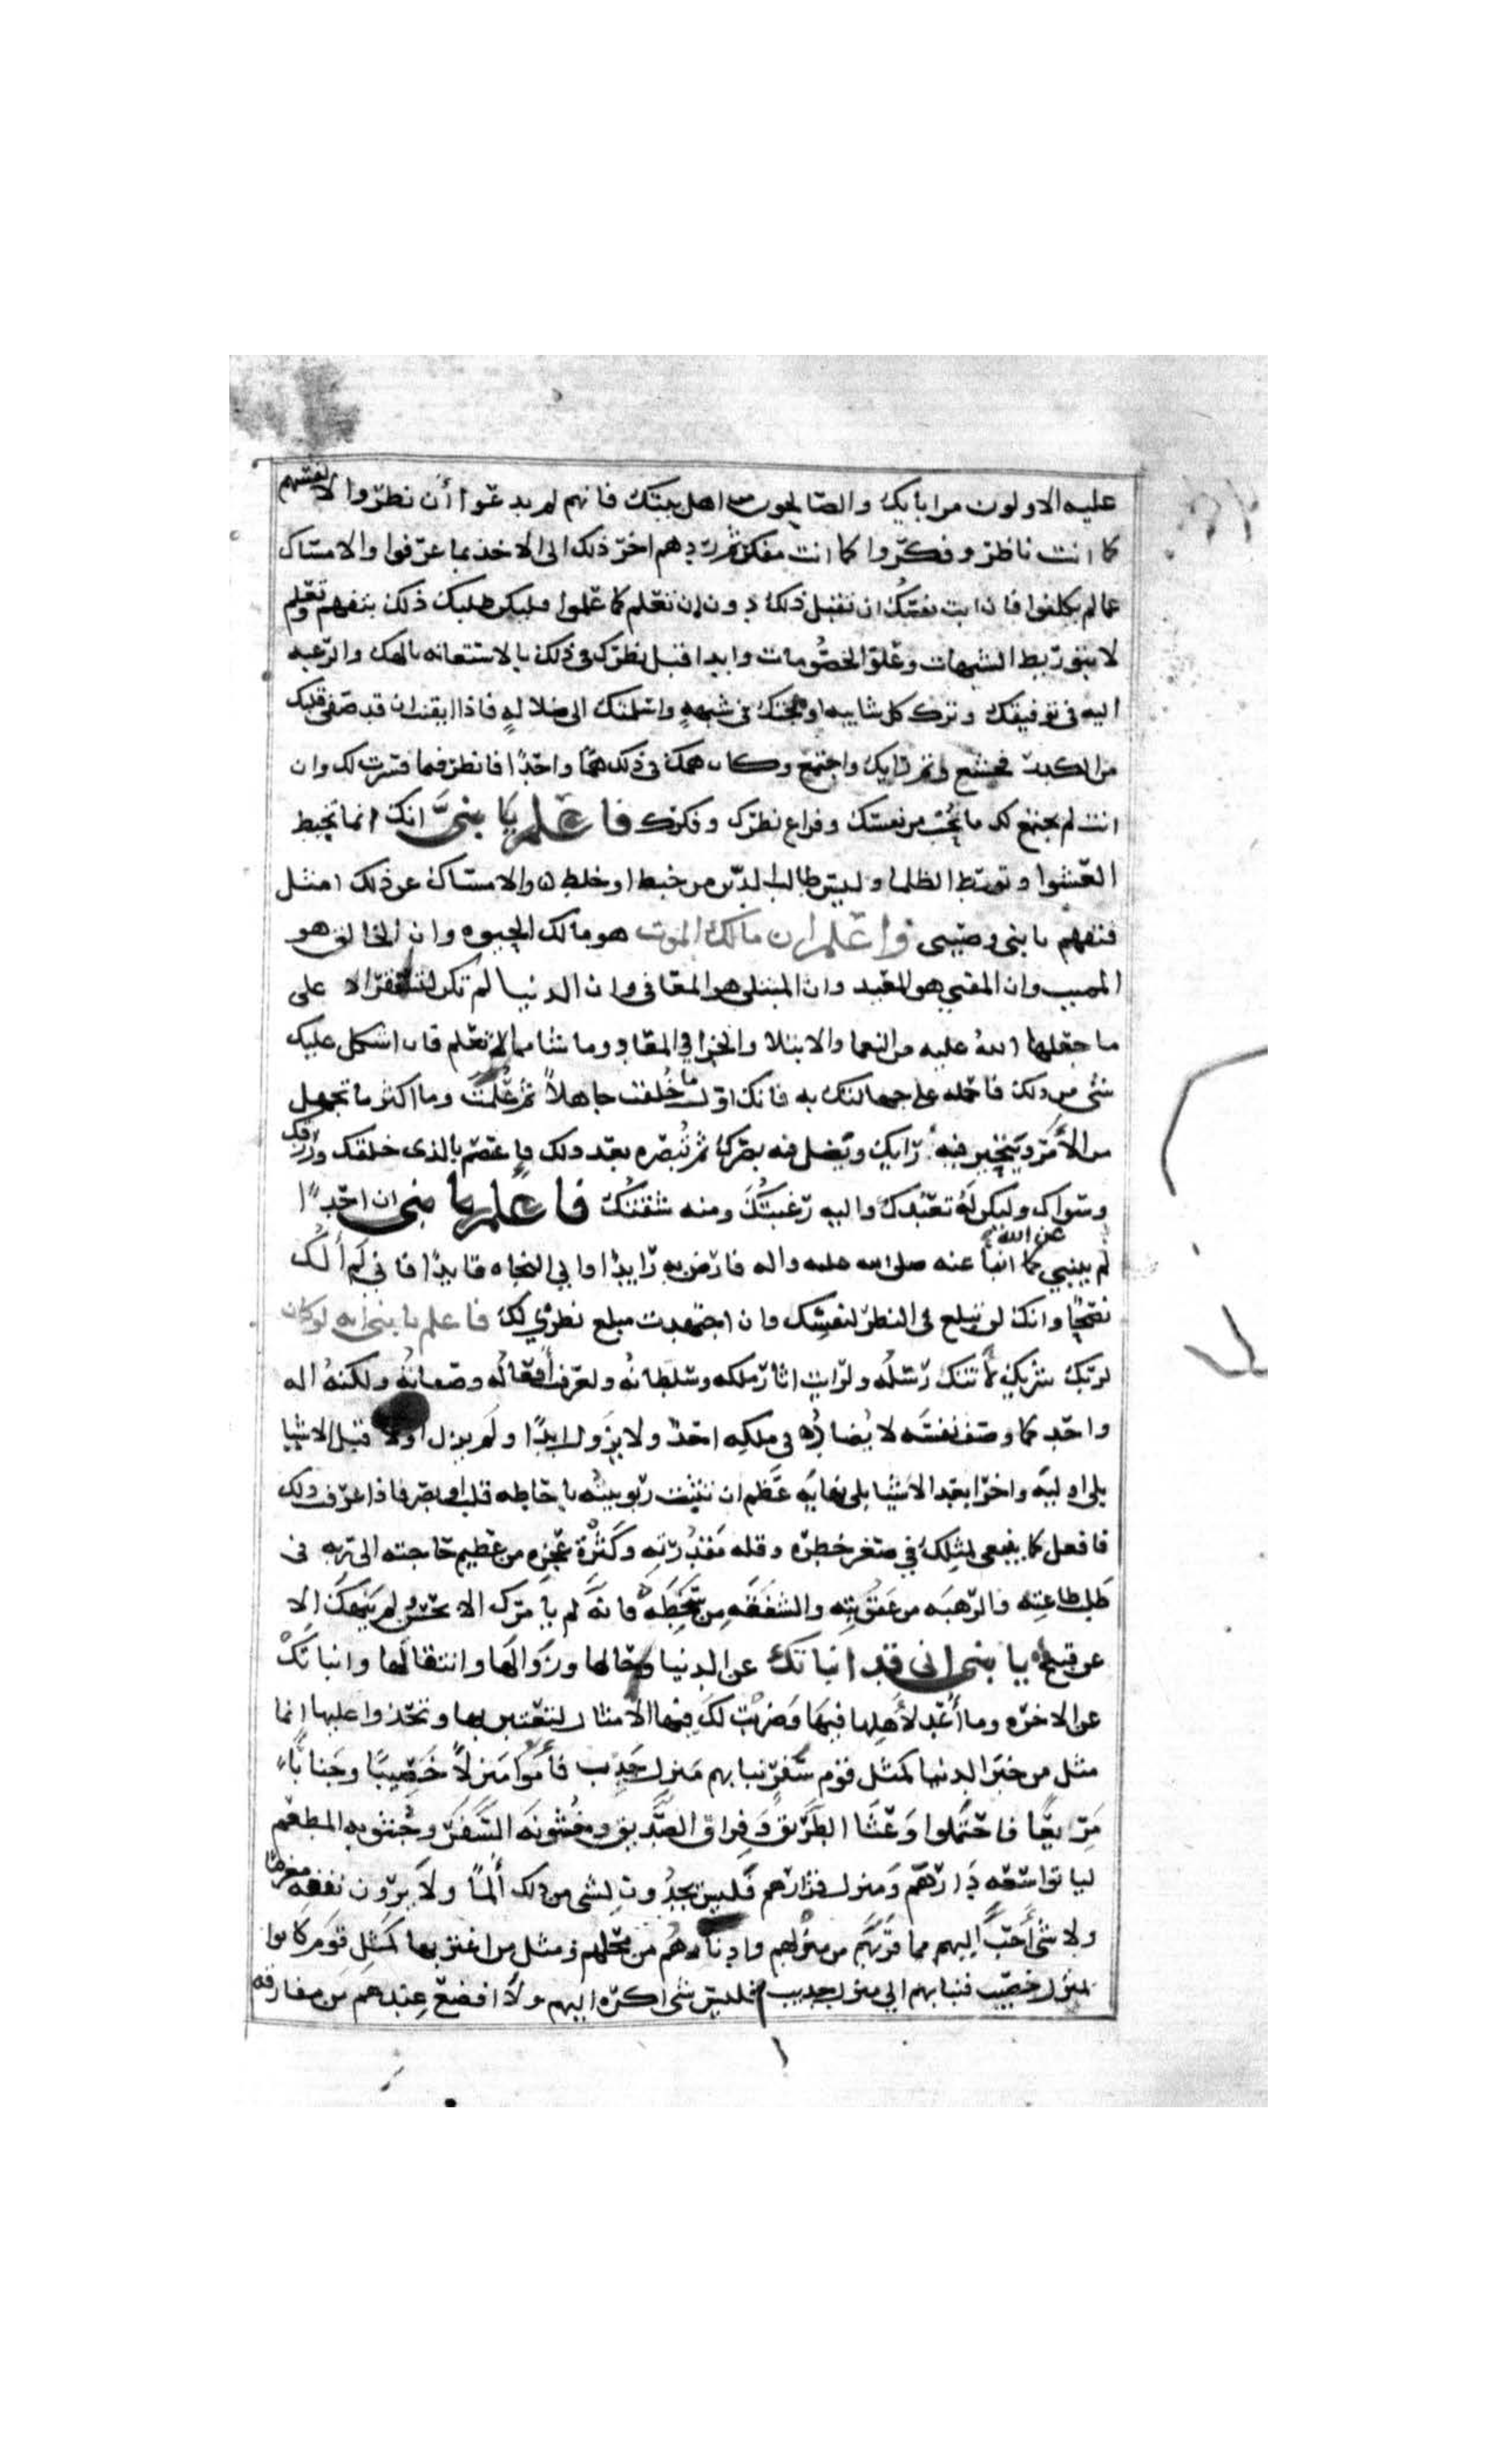 عليه الاولون من ابايك والصالحون من اهل بيتك فانهم لم يدعوا أن نظروا لانفسهم
كما انت ناظر وفكروا كما انت مفكر ثم ردهم اخر ذلك الى الاخذ بما عرفوا والامساك
عما لم يكلفوا فان ابت نفسك ان تقبل ذلك دون ان تعلم كما علموا فليكن طلبك ذلك بتفهم وتعلم
لا بتورط الشبهات وعلو الخصومات وابدا قبل نظرك في ذلك بالاستعانه بالهك والرغبه
اليه في توفيقك وترك كل شايبه اولجتك في شبهةٍ واسلمتك الى ضلالهٍ فاذا ايقنت ان قد صفى قلبك
من الكدر فخشع وتم رايك واجتمع وكان همك في ذلك همًّا واحدًا فانظر فيما فسرت لك وان
انت لم يجتمع لك ما تُحب من نفسك وفراغ نظرك وفكرك فاعلم يا بنيَّ انك انما تخبط
العشوا وتورط الظلما وليس طالب الدين من خبط او خلط والامساك عن ذلك امثل
فتفهم يا بني وصيتي واعلم ان مالك الموت هو مالك الحيوه وان الخالق هو
المميت وان المفني هو المعيد وان المبتلي هو المعافي وان الدنيا لم تكن لتستقر الا على
ما جعلها اللهُ عليه من النعما والابتلا والجزا في المعاد وما شا مما لا تعلم فان اشكل عليك
شي من ذلك فاحمله على جهالتك به فانك اول ما خُلقت جاهلاً ثم عُلّمتَ وما اكثر ما تجهل
من الأمر ويتحير فيه رايك ويَضل فيه بصرك ثم تُبصره بعد ذلك فاعتصم بالذي خلقك ورزقك
وسواك وليكن لَهُ تعبُدك واليه رَغبتُكَ ومنه شفقتُكَ فاعلم يا بني ان احدًا
لم ينبي عن الله كما انبأ عنه صلى الله عليه واله فارض به رَايدًا والى النجاه قايدًا فاني لم ألُكَ
نصحًا وانك لن تبلغ في النظر لنفسك وان اجتهدت مبلغ نظري لك فاعلم يا بني انه لو كان
لربك شريك لأتتك رُسُلُه ولرايت اثار ملكه وسلطانه ولعرفت أفعالُه وصفاتُهُ ولكنهُ اله
واحد كما وصف نفسَه لا يُضادُّه في ملكِه احدٌ ولا يزول ابدًا ولم يزل اولا قبل الاشيا
بلى اوليَّه واخرا بعد الاشيا بلى نهايهٍ عَظُم ان تثبت ربوبيتُه باحاطه قلب او بصر فاذا عرفت ذلك
فافعل كما ينبغي لمثلك في صغر خطره وقله مَقدُرَته وكَثْرَة عجزه من عظيم حاجته الى ربه في
طلب طاعته والرَّهبَه من عقُوبته والشفَقَه من سُخطِهِ فانه لم يأمرك الا بحسن ولم ينهكَ الا
عن قبيح يا بني اني قد انباتك عن الدنيا وحالها وزَوَالَها وانتقالَها وانباتَكْ
عن الاخره وما أُعد لأهلها فيها وضربتُ لكَ فيهما الامثال لتعتبر بها وتحذوا عليها انما
مثل من خبر الدنيا كمثل قوم سَفرٍ نبا بهم مَنزل جَديب فأمّوا مَنزلاً خَصيبًا وجَنابًا
مَريعًا فاحتملوا وَعْثَا الطَّريق وَفِراق الصَّديق وخُشونَه السَّفر وجُشوبه المطعم
لياتوا سَعَه دَارهم وَمنزل قرارهم فليس يجدُون لشي من ذلك ألمًا ولا يَرَون نفقهً مغرمًا
ولا شئ أَحَبّ اليهم مما قرّبهم من منزلهم وادناهُم من محلهم ومثل من اغتر بها كمثل قوم كانوا
بمنزل خصيب فنبا بهم الى منزل جديب فليس شى اكره اليهم ولا افضع عندهم من مفارقه